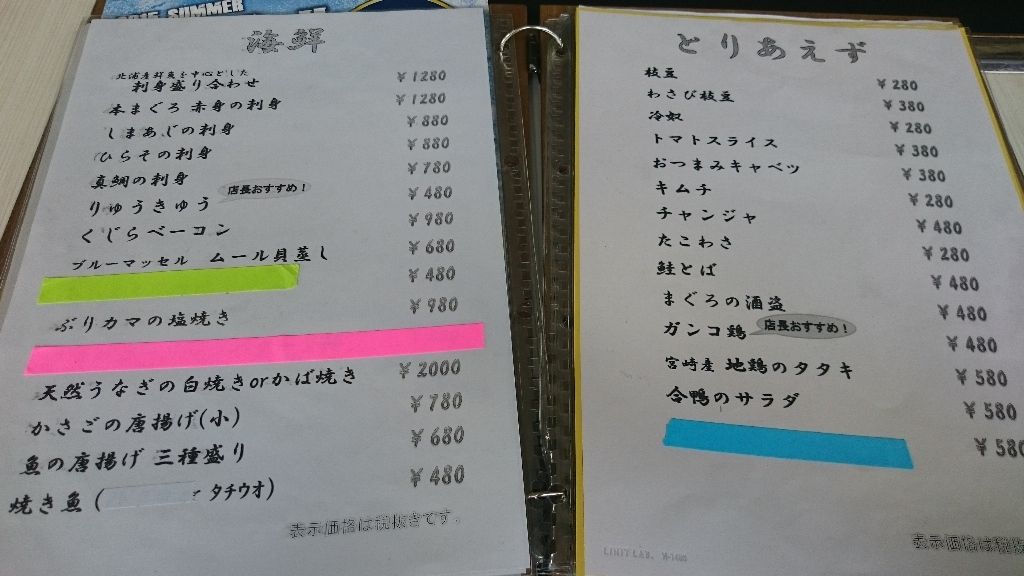 2015 SUMMER
海鮮
北浦産鮮魚を中心とした
刺身盛り合わせ ￥1280
本まぐろ 赤身の刺身 ￥1280
しまあじの刺身 ￥880
ひらその刺身 ￥880
真鯛の刺身 ￥780
りゅうきゅう 店長おすすめ! ￥480
くじらベーコン ￥980
ブルーマッセル ムール貝蒸し ￥680
￥480
ぶりカマの塩焼き ￥980
天然うなぎの白焼きorかば焼き ￥2000
かさごの唐揚げ(小) ￥780
魚の唐揚げ 三種盛り ￥680
焼き魚( タチウオ) ￥480
表示価格は税抜きです。
とりあえず
枝豆 ￥280
わさび枝豆 ￥380
冷奴 ￥280
トマトスライス ￥380
おつまみキャベツ ￥380
キムチ ￥280
チャンジャ ￥480
たこわさ ￥280
鮭とば ￥480
まぐろの酒盗 ￥480
ガンコ鶏 店長おすすめ! ￥480
宮崎産 地鶏のタタキ ￥580
合鴨のサラダ ￥580
￥580
表示価格は税抜